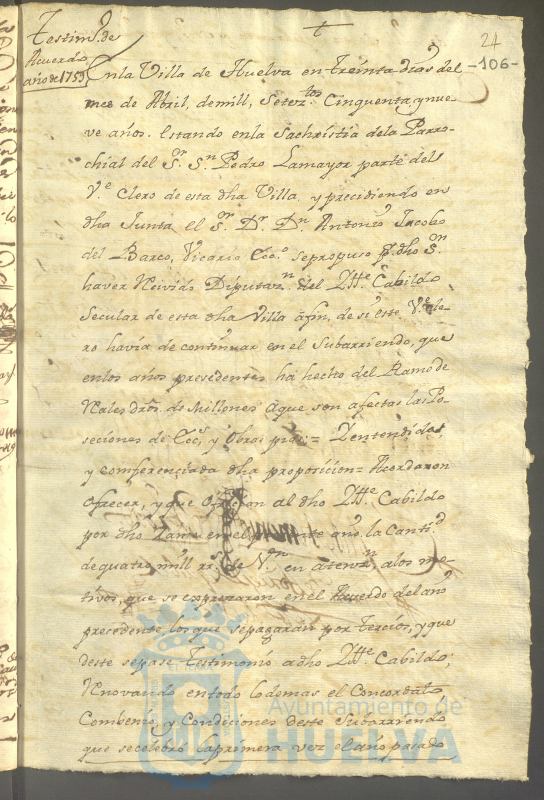 Testimº. de
Acuerdo
año de 1759
+
24
-106-
En la Villa de Huelva en treinta dias del
mes de Abril, de mill, Setezᵗᵒˢ Cinquenta y nue-
ve años. Estando en la Sachristia de la Parro-
chial del Sʳ. Sⁿ. Pedro La mayor parte del
Vᵉ. Clero de esta dha Villa, y precidiendo en
dha Junta el Sʳ. Dʳ. Dⁿ. Antonio Jacobo
del Barco, Vicario Eccº. se propuso pʳ. dho Sʳ
haver Recivido Diputazⁿ. del Yttᵉ. Cabildo
Secular de esta dha Villa afin, de si este Vᵉ. Cle-
ro havia de continuar en el Subarriendo, que
en los años precedentes ha hecho del Ramo de
Reales dros. de Millones a que son afectas las Po-
seciones de Eccº. y Obras pias = Y entendida,
y comferenciada dha proposicion = Acordaron
Ofrecer, y que Ofrezcan al dho Yttᵉ. Cabildo
por dho Ramo en el año la Cantᵈ
de quatro mill rˢ. de Vⁿ. en atenzⁿ a los mo-
tivos, que se exprezaron en el Acuerdo del año
precedente los que se pagaran por tercios, y que
deste se pase Testimonio a dho Yttᵉ. Cabildo,
Renovando en todo lo demas el Concordato
Combenio, y Condiciones deste Subarriendo
que se celebró la primera vez el año pasado
Ayuntamiento de
HUELVA